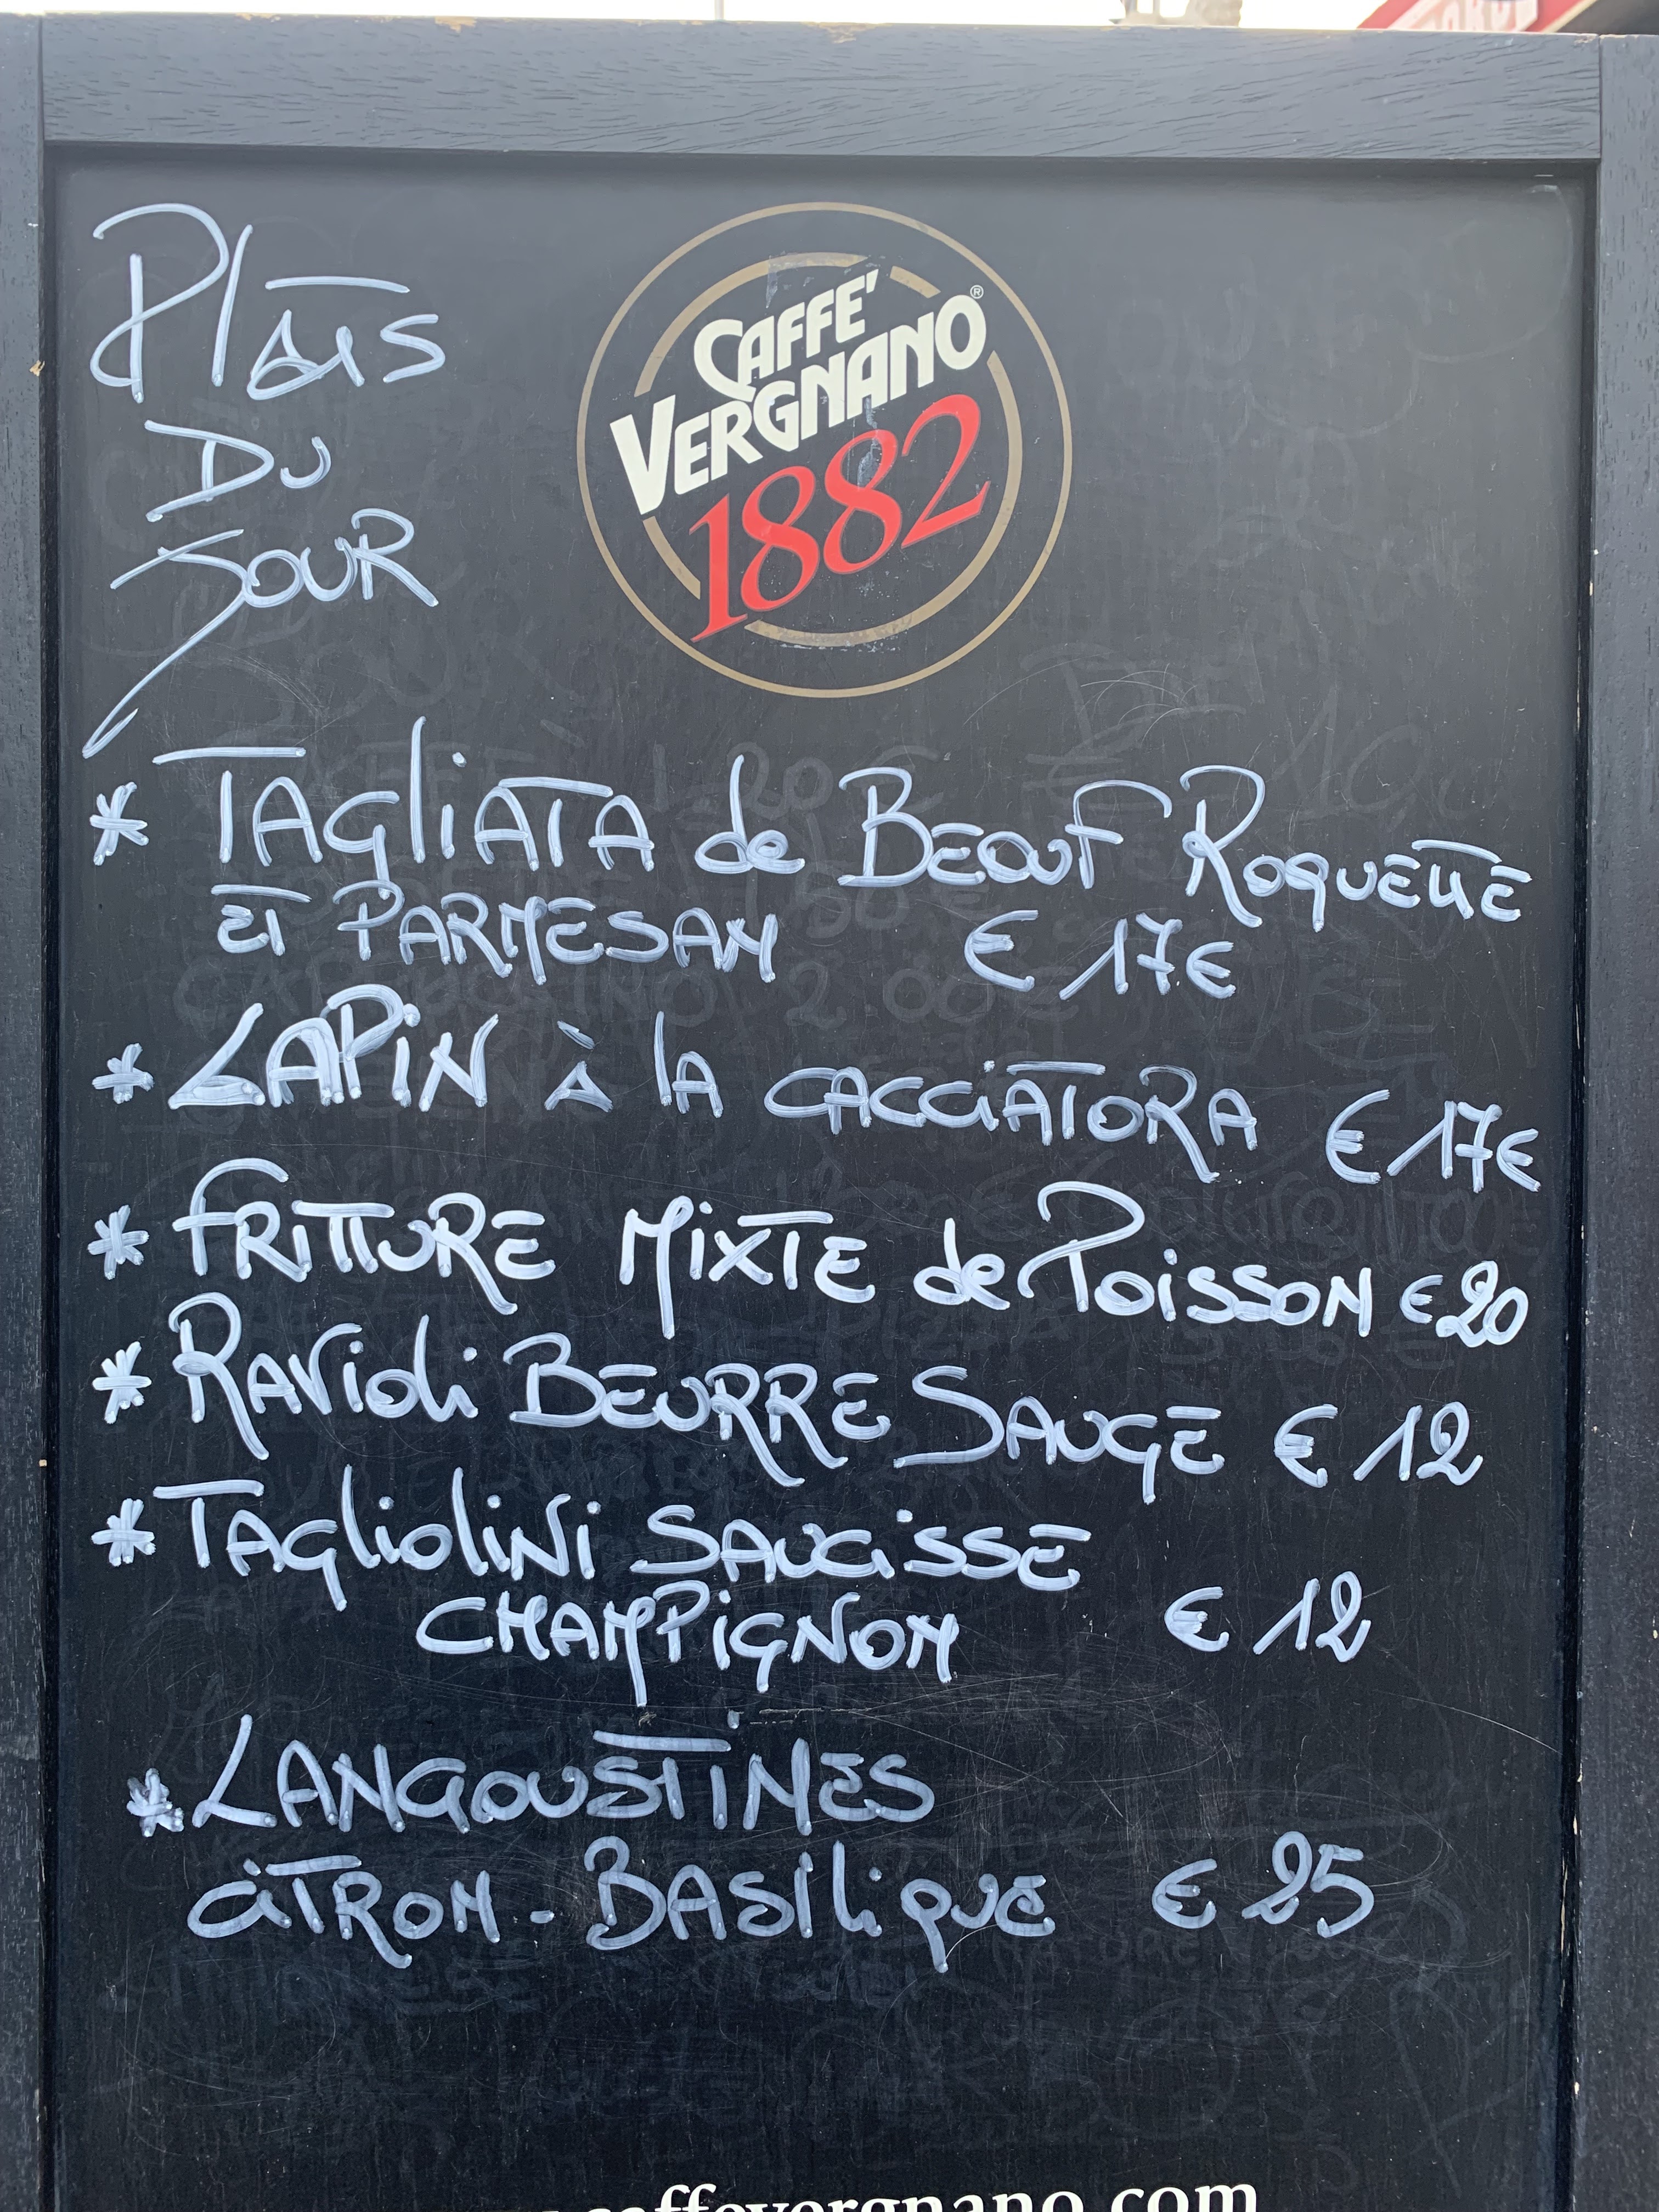 Plats
CAFFÈ
VERGNANO®
1882
Du
JOUR
* TAGLIATA de BEOUF ROQUETTE
ET PARMESAN € 17€
* LAPIN À LA CACCIATORA € 17€
* FRITTURE MIXTE de POISSON €20
* RAVIOLI BEURRE SAUGE € 12
* TAGLIOLINI SAUCISSE
CHAMPIGNON € 12
* LANGOUSTINES
CITRON - BASILIQUE € 25
caffevergnano.com